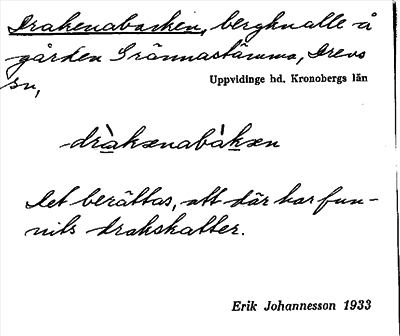 Drakenabacken, bergknalle å
gården Grännastämma, Drevs
sn,
Uppvidinge hd. Kronobergs län
dràkǝnabàkǝn
Det berättas, att där har fun-
nits drakskatter.
Erik Johannesson 1933